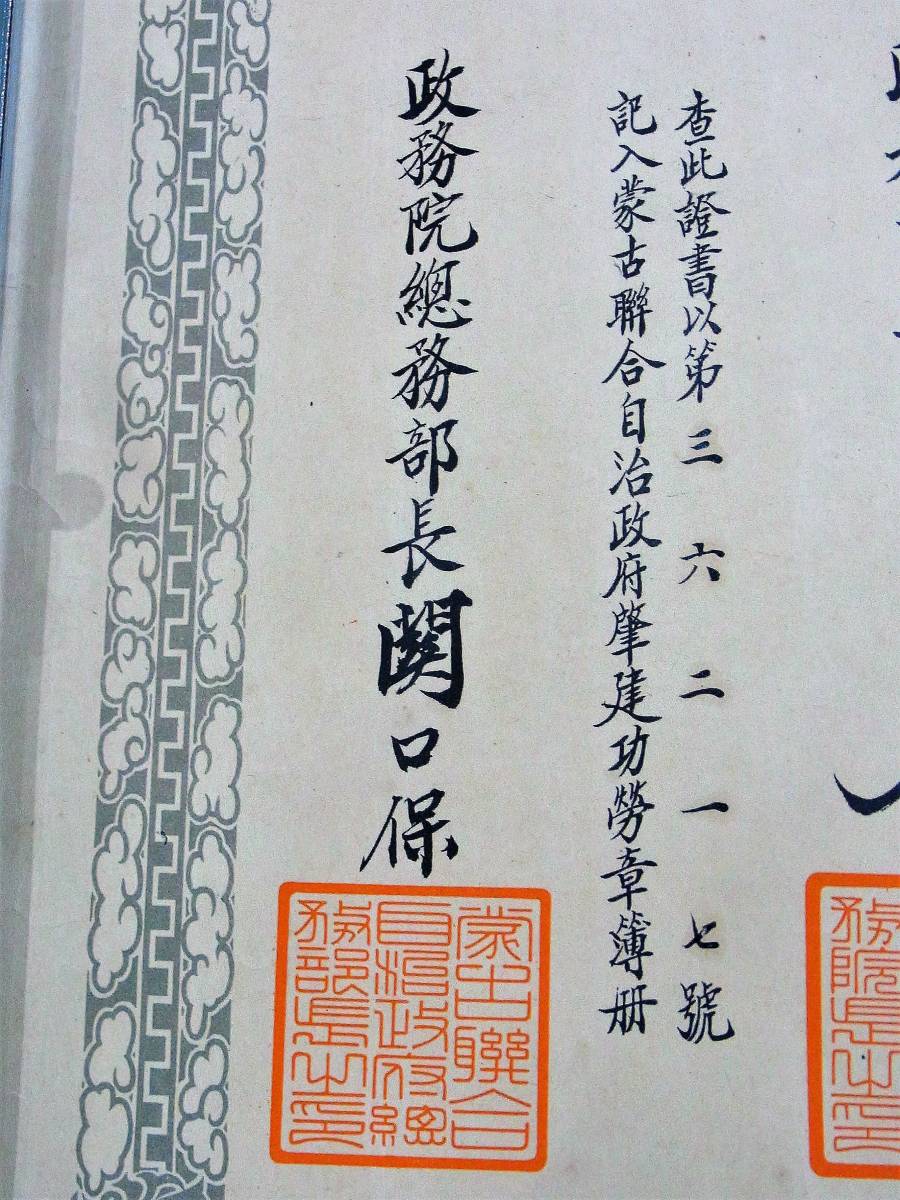 查此證書以第三六二一七號
記入蒙古聯合自治政府肇建功勞章簿册
政務院總務部長關口保
務院長之印
蒙古聯合
自治政府總
務部長之印